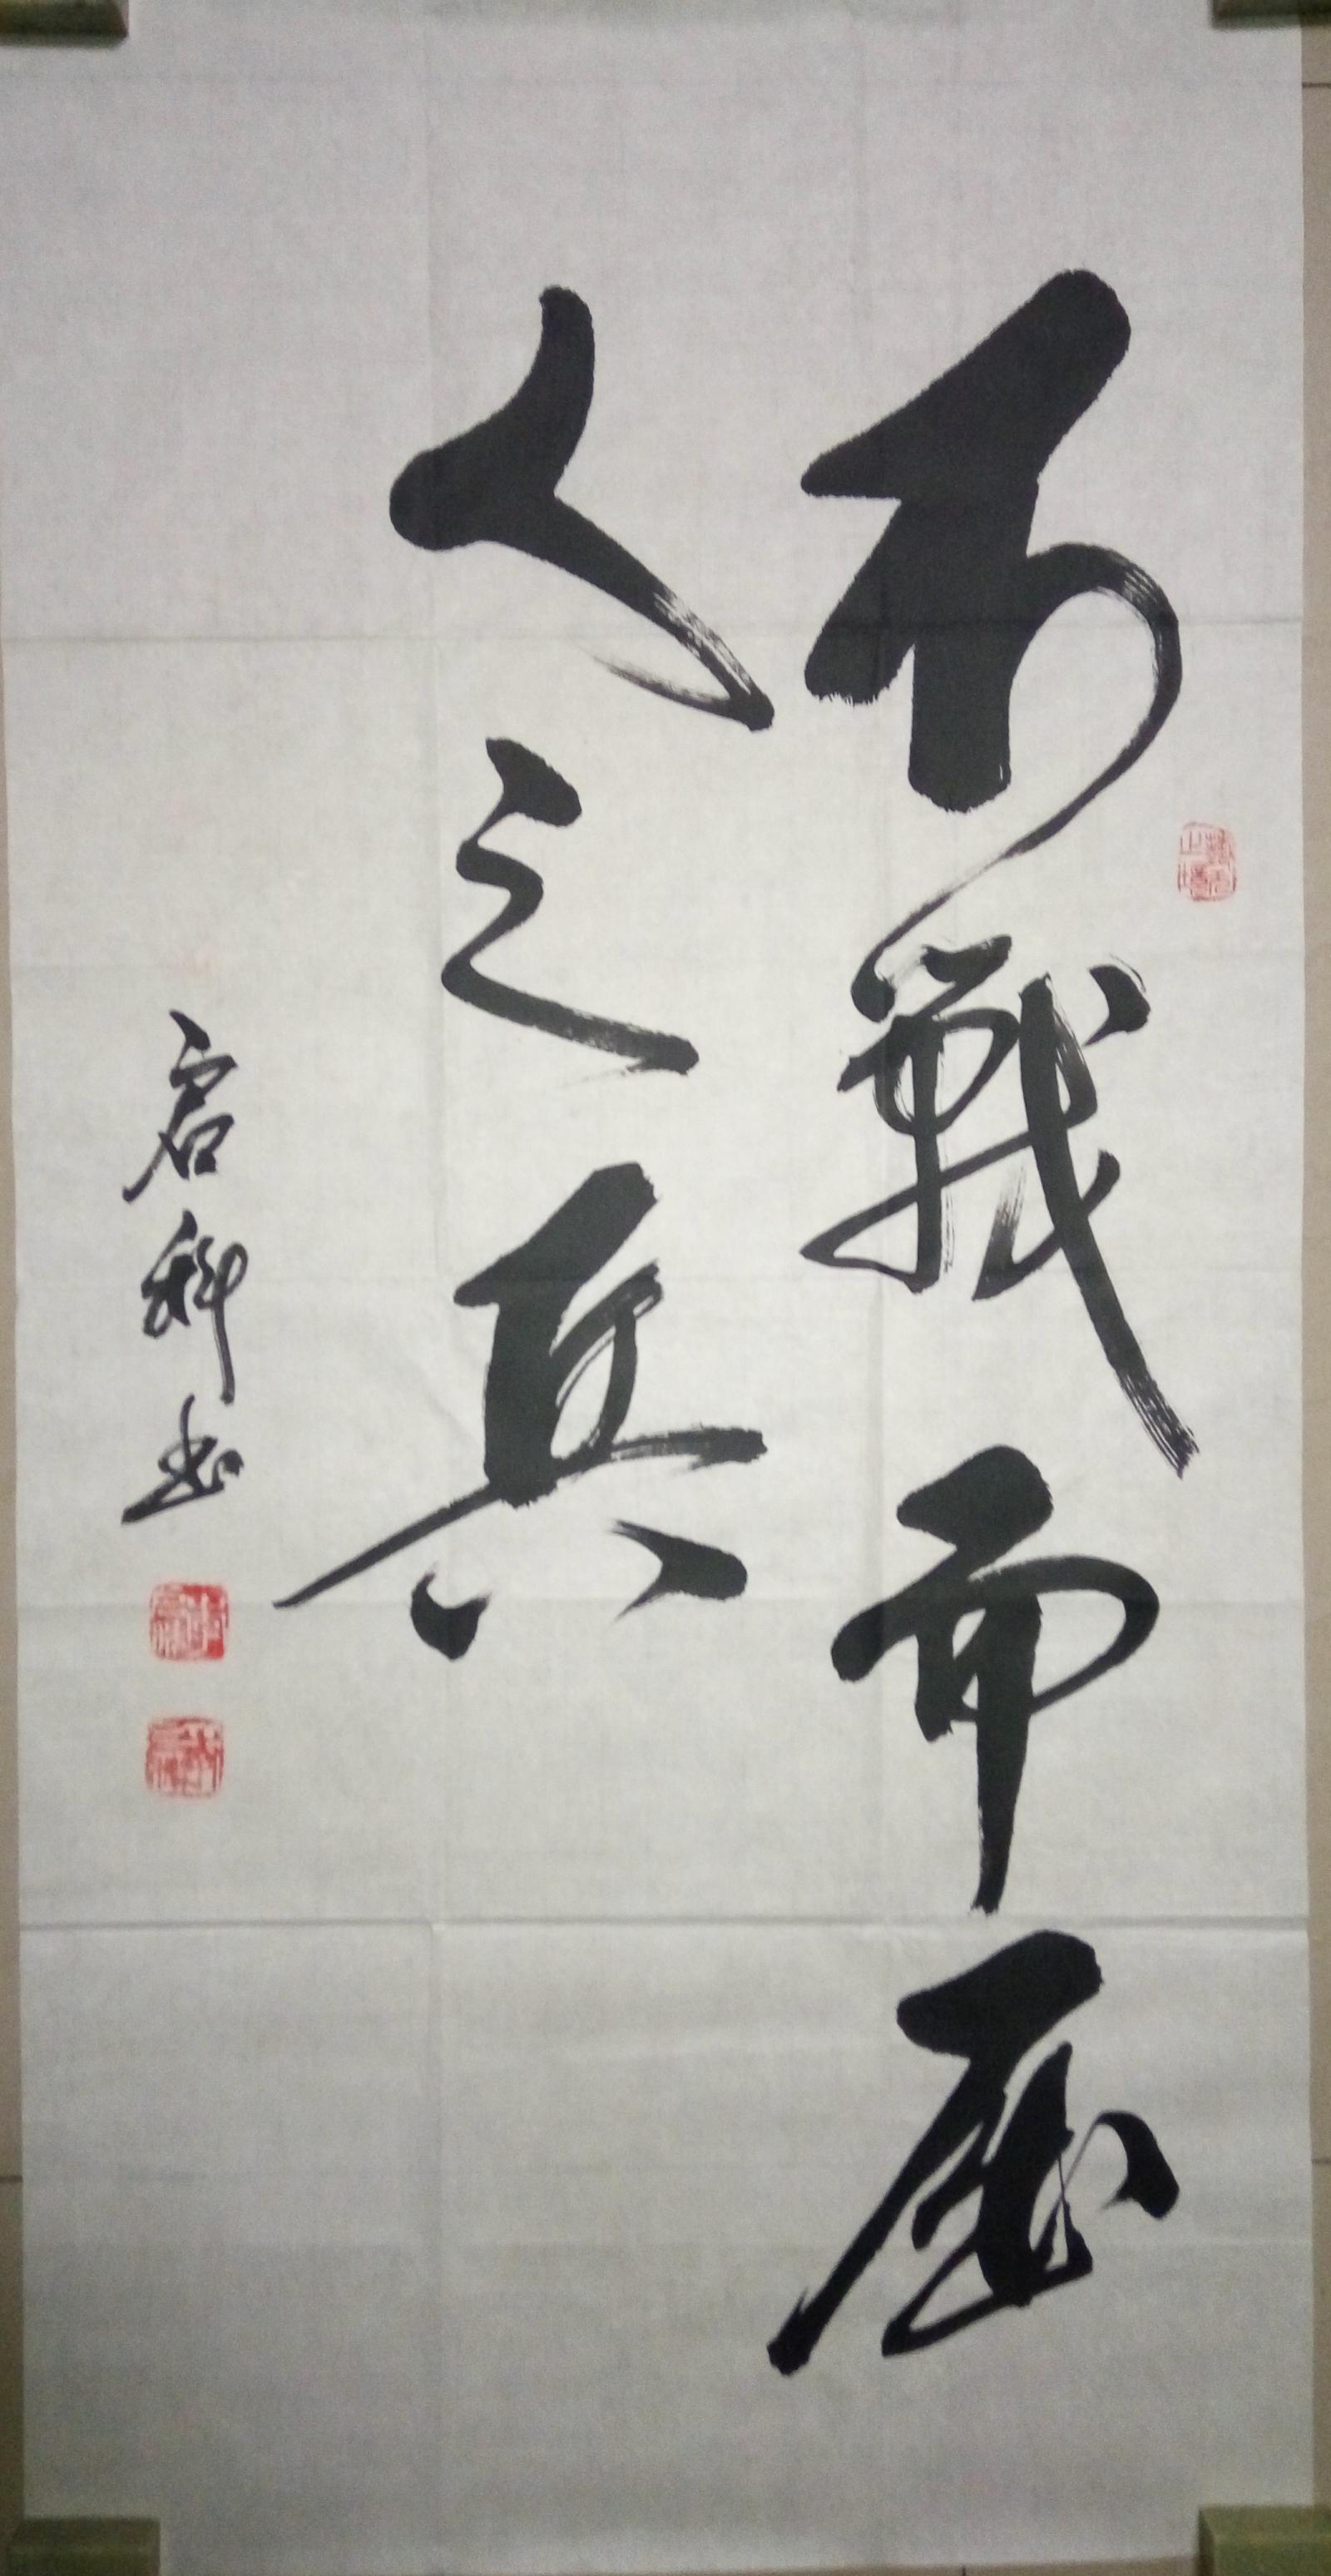 不戰而屈
人之兵
启科书